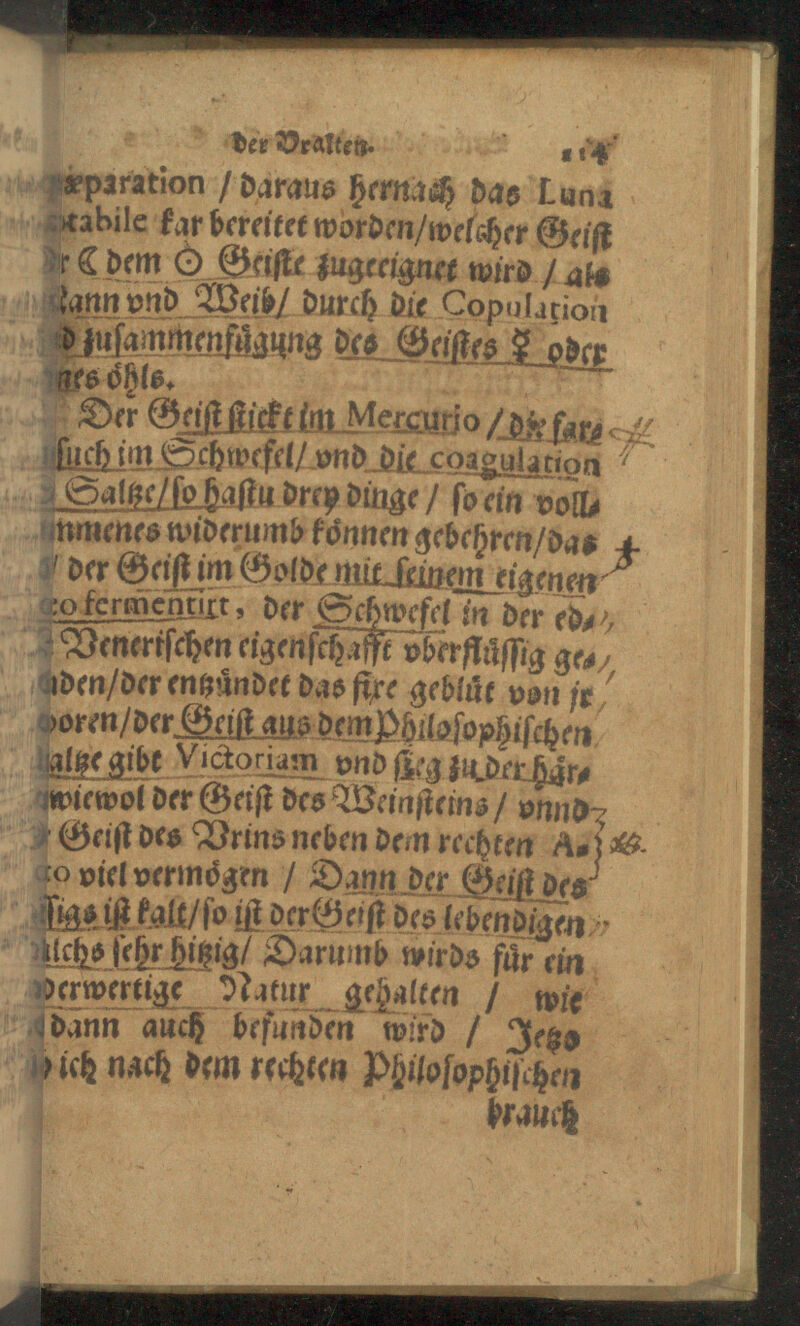 der Vralten. 114
ræparation / daraus hernach das Luna
potabile kar bereitet worden/welcher Geist
☾ dem ☉ Geiste zugeeignet wird / als
Mann vnd Weib/ durch die Copulation
zusammenfůgung des Geistes ☿ oder
öhls.
Der Geist stickt im Mercurio / die farb
such im Schwefel/ vnd die coagulation
Saltze/so hastu drey dinge / so ein voll⸗
mmenes widerumb können gebehren/das
der Geist im Golde mit seinem eigenen
fermentirt, der Schwefel in der ed⸗
Venerischen eigenschafft vberflůssig ge⸗
nden/der entzůndet das fixe geblůt von jr
boren/der Geist aus dem Philosophischen
altze gibt Victoriam vnd sieg zu der här⸗
wiewol der Geist des Weinsteins / vnnd
Geist des Vrins neben dem rechten A⸗
to viel vermögen / Dann der Geist des
ssigs ist kalt/so ist der Geist des lebendigen
alchs sehr hitzig/ Darumb wirds für ein
derwertige Natur gehalten / wie
dann auch befunden wird / Jetzo
ich nach dem rechten Philosophischen
brauch